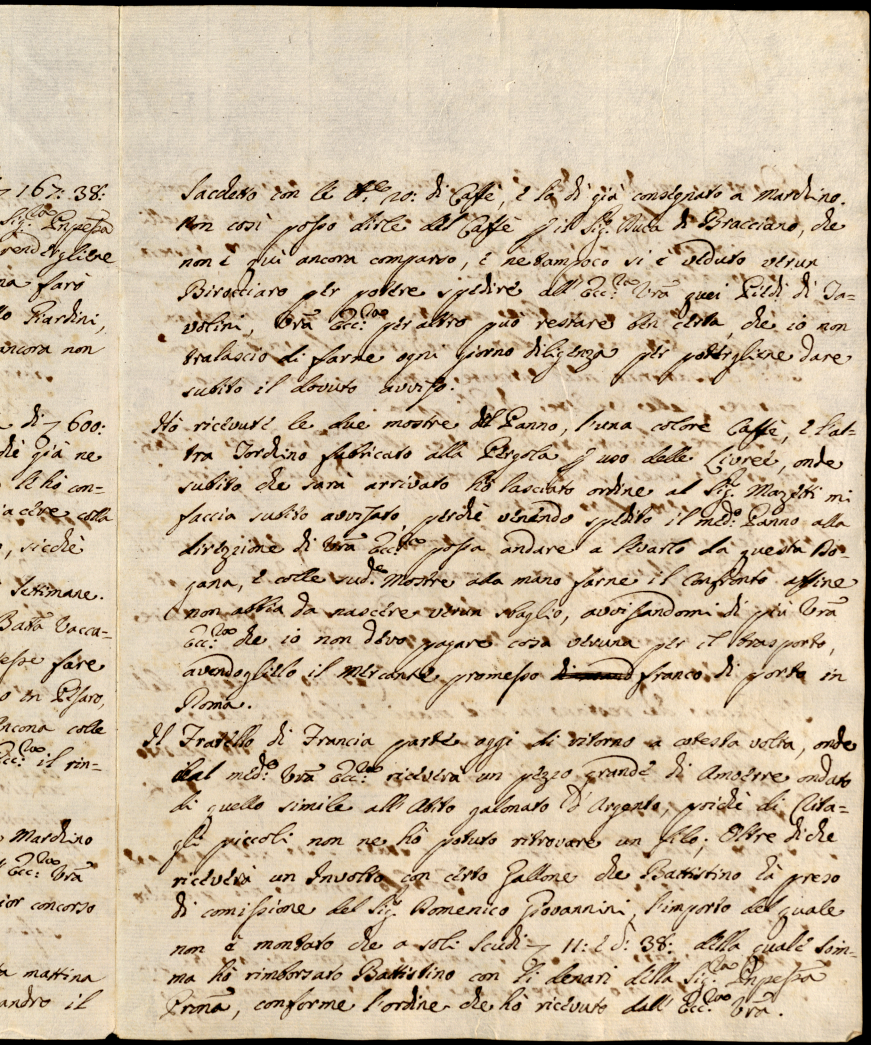 7 167: 38:
Sig.ra Pnpessa
rendergliene
na farò
lo Giardini,
ancora non
a di 7 600:
chè già ne
li hò con-
iacere colla
, sicchè
Settimane.
Batta Vaccu-
tesse fare
o in Pesaro,
Ancona colle
Ecc:za il rin-
Marchino
Ecc:za Vrã
ior concorso
ta mattina
andro il
Sacchetto con le 20: di Caffè, e là di già consegnato a Marchino.
Non così posso dirle del Caffè p il Sig: Duca di Bracciano, che
non è quà ancora comparso, e ne tampoco si è veduto verun
Birocciaro per potere spedire all' Ecc:za Vrã quei Piedi di Ta=
volini, Vrã Ecc:za per altro può restare ben certa, che io non
tralascio di farne ogni giorno diligenza per potergliene dare
subito il dovuto avviso.
Hò ricevute le due mostre del Panno, l'una colore Caffè, e l'al-
tra Tordino fabricato alla Pergola p uso delle Livree, onde
subito che sarà arrivato hò lasciato ordine al Sig: mi
faccia subito avvisato, perchè venendo spedito il med:o Panno alla
direzione di Vrã Ecc:za possa andare a levarlo da questa Do-
gana, e colle sud.e Mostre alla mano farne il Confronto affine
non abbia da nascere verun sbaglio, avvisandomi di più Vrã
Ecc:za che io non devo pagare cosa veruna per il trasporto,
avendoglielo il Mercante promesso franco di porto in
Roma.
Il Fratello di Francia parte oggi di ritorno a cotesta volta, onde
dal med:o Vrã Ecc:za riceverà un pezzo grande di Amoerre ondato
di quello simile all'Abito galonato d'Argento, poichè di Rita=
gli piccoli non ne hò potuto ritrovare un filo; Oltre di che
riceverà un Involto con certo Gallone che Battistino hà preso
di comissione del Sig: Domenico Giovannini, l'importo del quale
non è montato che a soli Scudi 7 11: e d: 38: della quale som-
ma hò rimborsato Battistino con li denari della Sig:ra Pnpessa
Prõna, conforme l'ordine che hò ricevuto dall' Ecc:za Vrã.